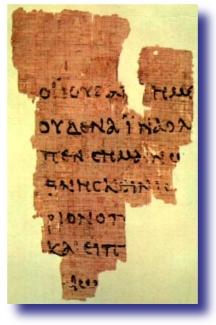 ΟΙ ΙΟΥΔΑΙ ΗΜΕ
ΟΥΔΕΝΑ ΪΝΑ Ο Λ
ΠΕΝ CΗΜΑΙΝΩ
ΘΝΗCΚΕΙΝ
ΡΙΟΝ Ο Π
ΚΑΙ ΕΙΠ
ΑΙΩ